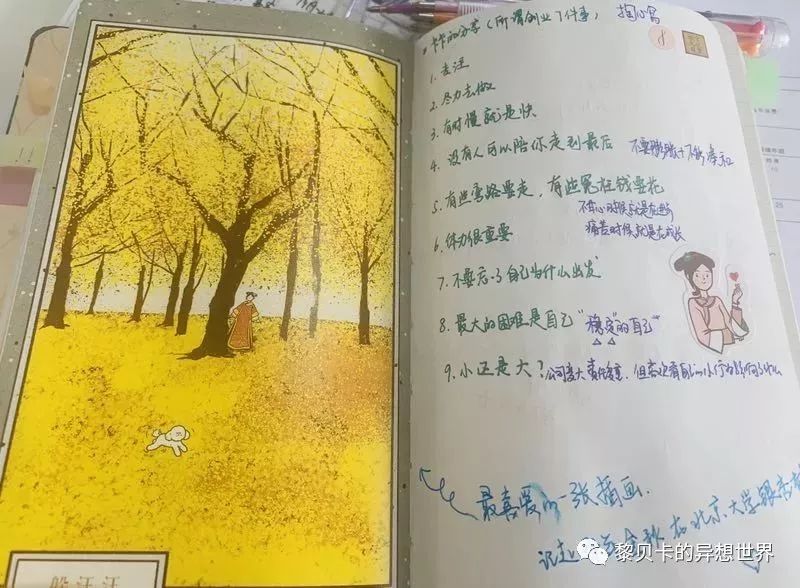 卡卡的分享（所谓创业7件事） 掏心窝
8
1. 专注
2. 尽力去做
3. 有时慢就是快
4. 没有人可以陪你走到最后 不要膨胀
5. 有些弯路要走，有些冤枉钱要花
不开心时候就是在进步
痛苦时候就是在成长
6. 体力很重要
7. 不要忘了自己为什么出发
8. 最大的困难是自己“稳定”的自己
9. 小还是大？公司变大责任变重，但
最喜爱的一张插画.
在北京大学
躲汪汪
黎贝卡的异想世界